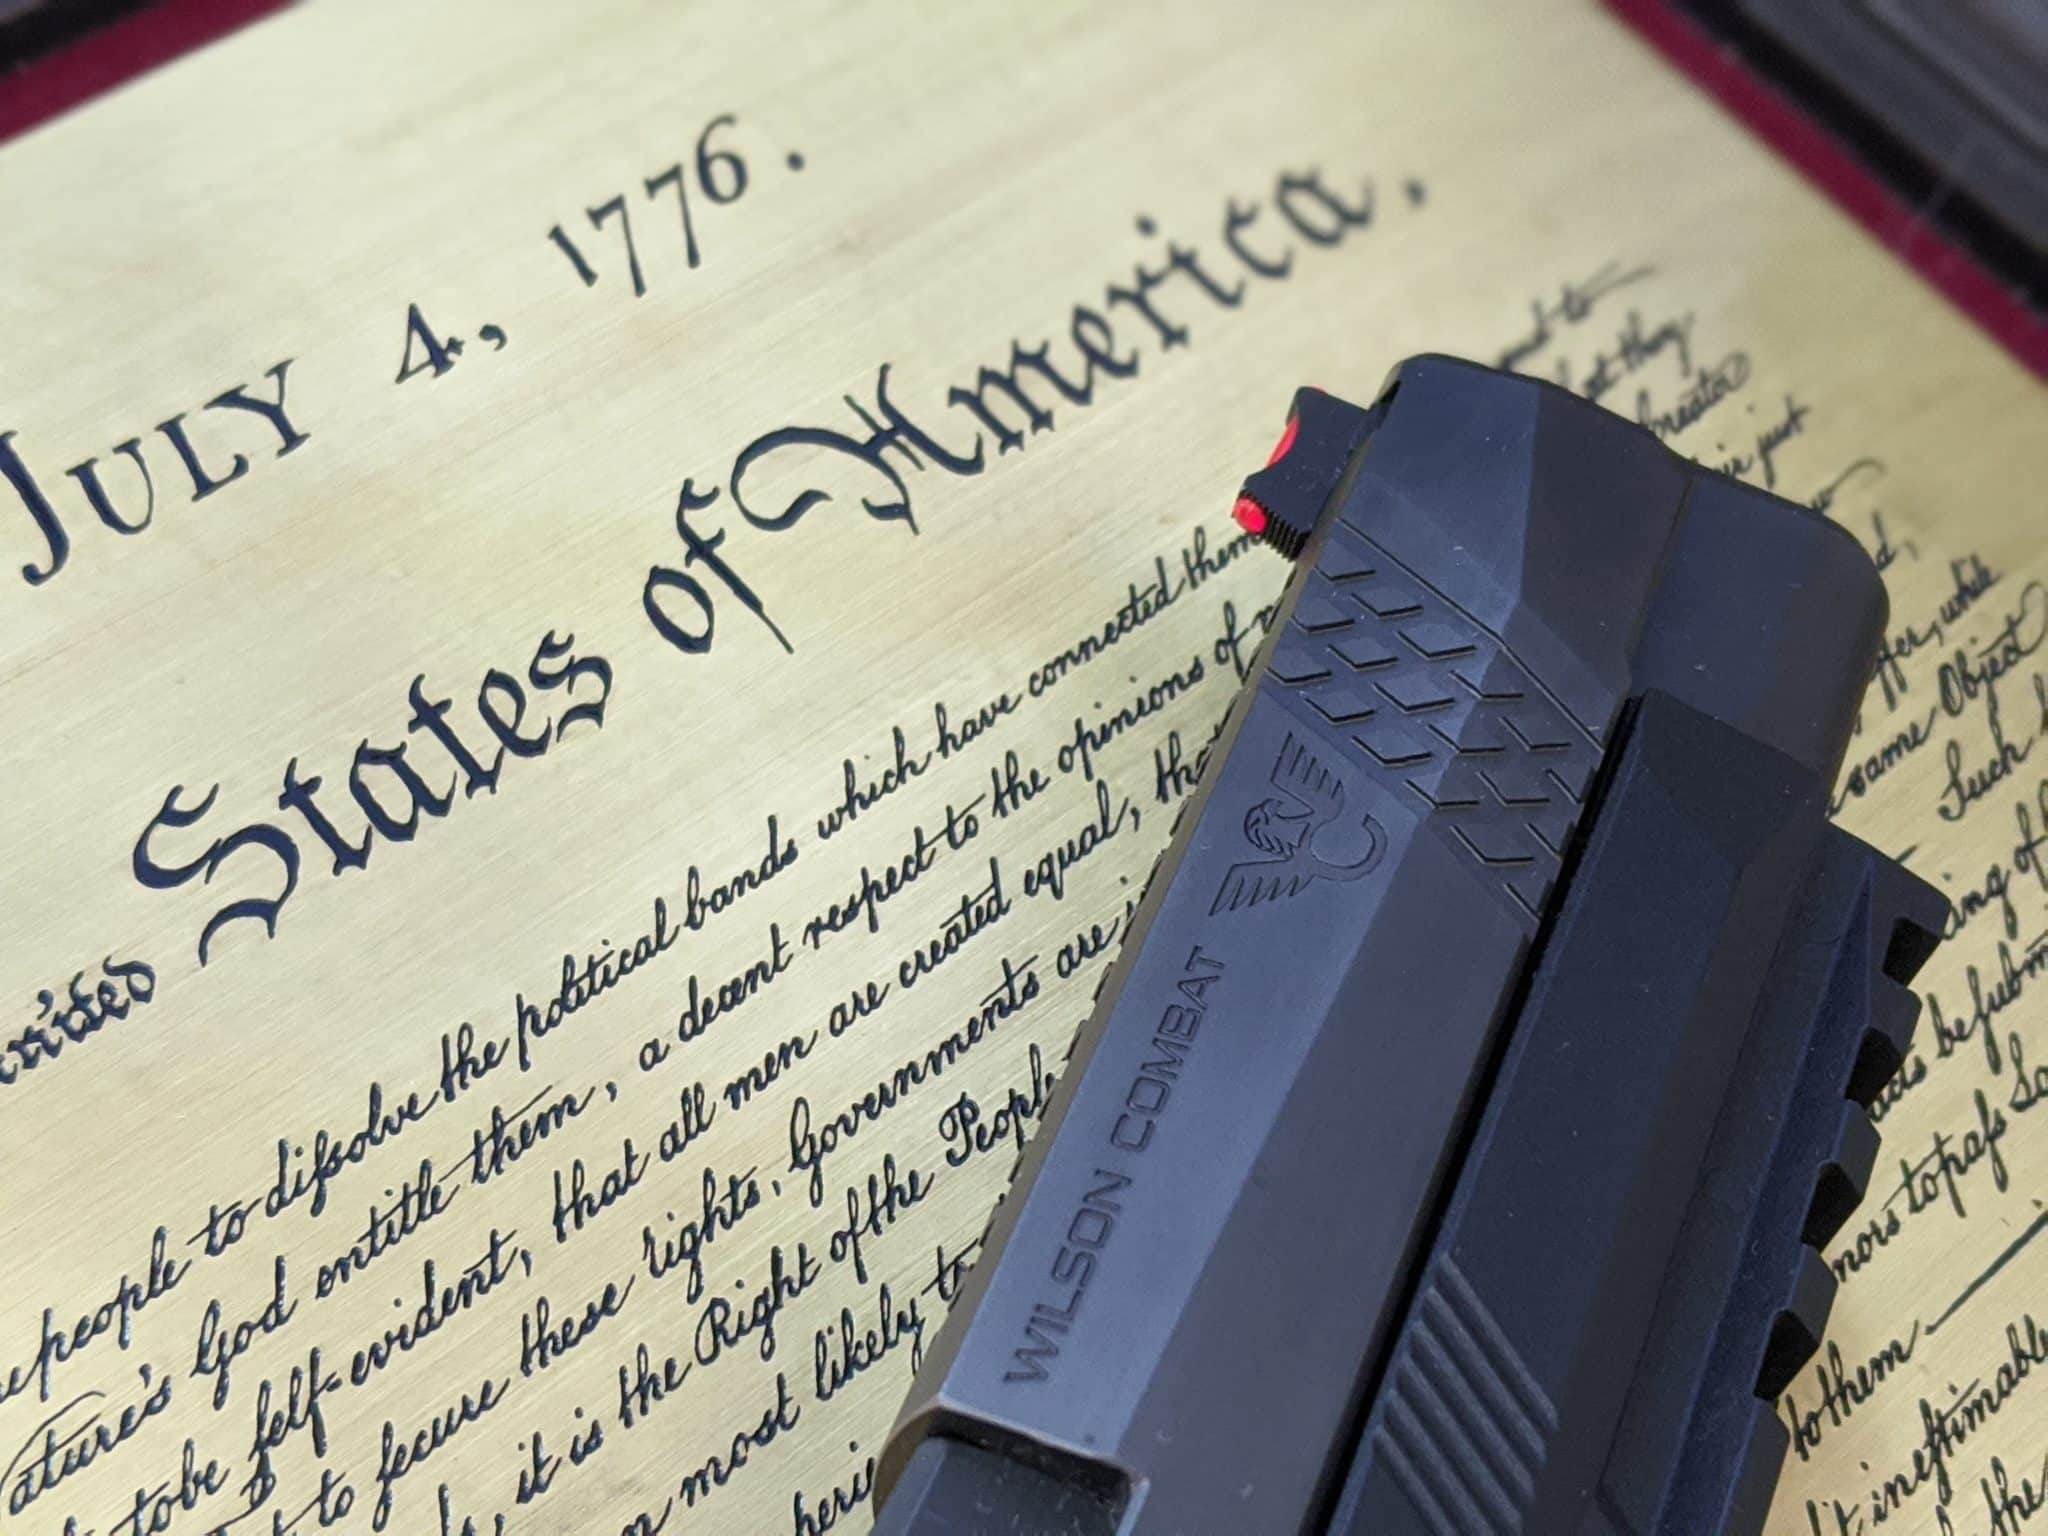 JULY 4, 1776.
States of America.
people to dissolve the political bands which have connected them
God entitle them, a decent respect to the opinions of
to be self-evident, that all men are created equal,
to secure these rights, Governments are
it is the Right of the
most likely to
to
Creator
just
while
same Object
Such
to pass
to them —
inestimable
the
WILSON COMBAT